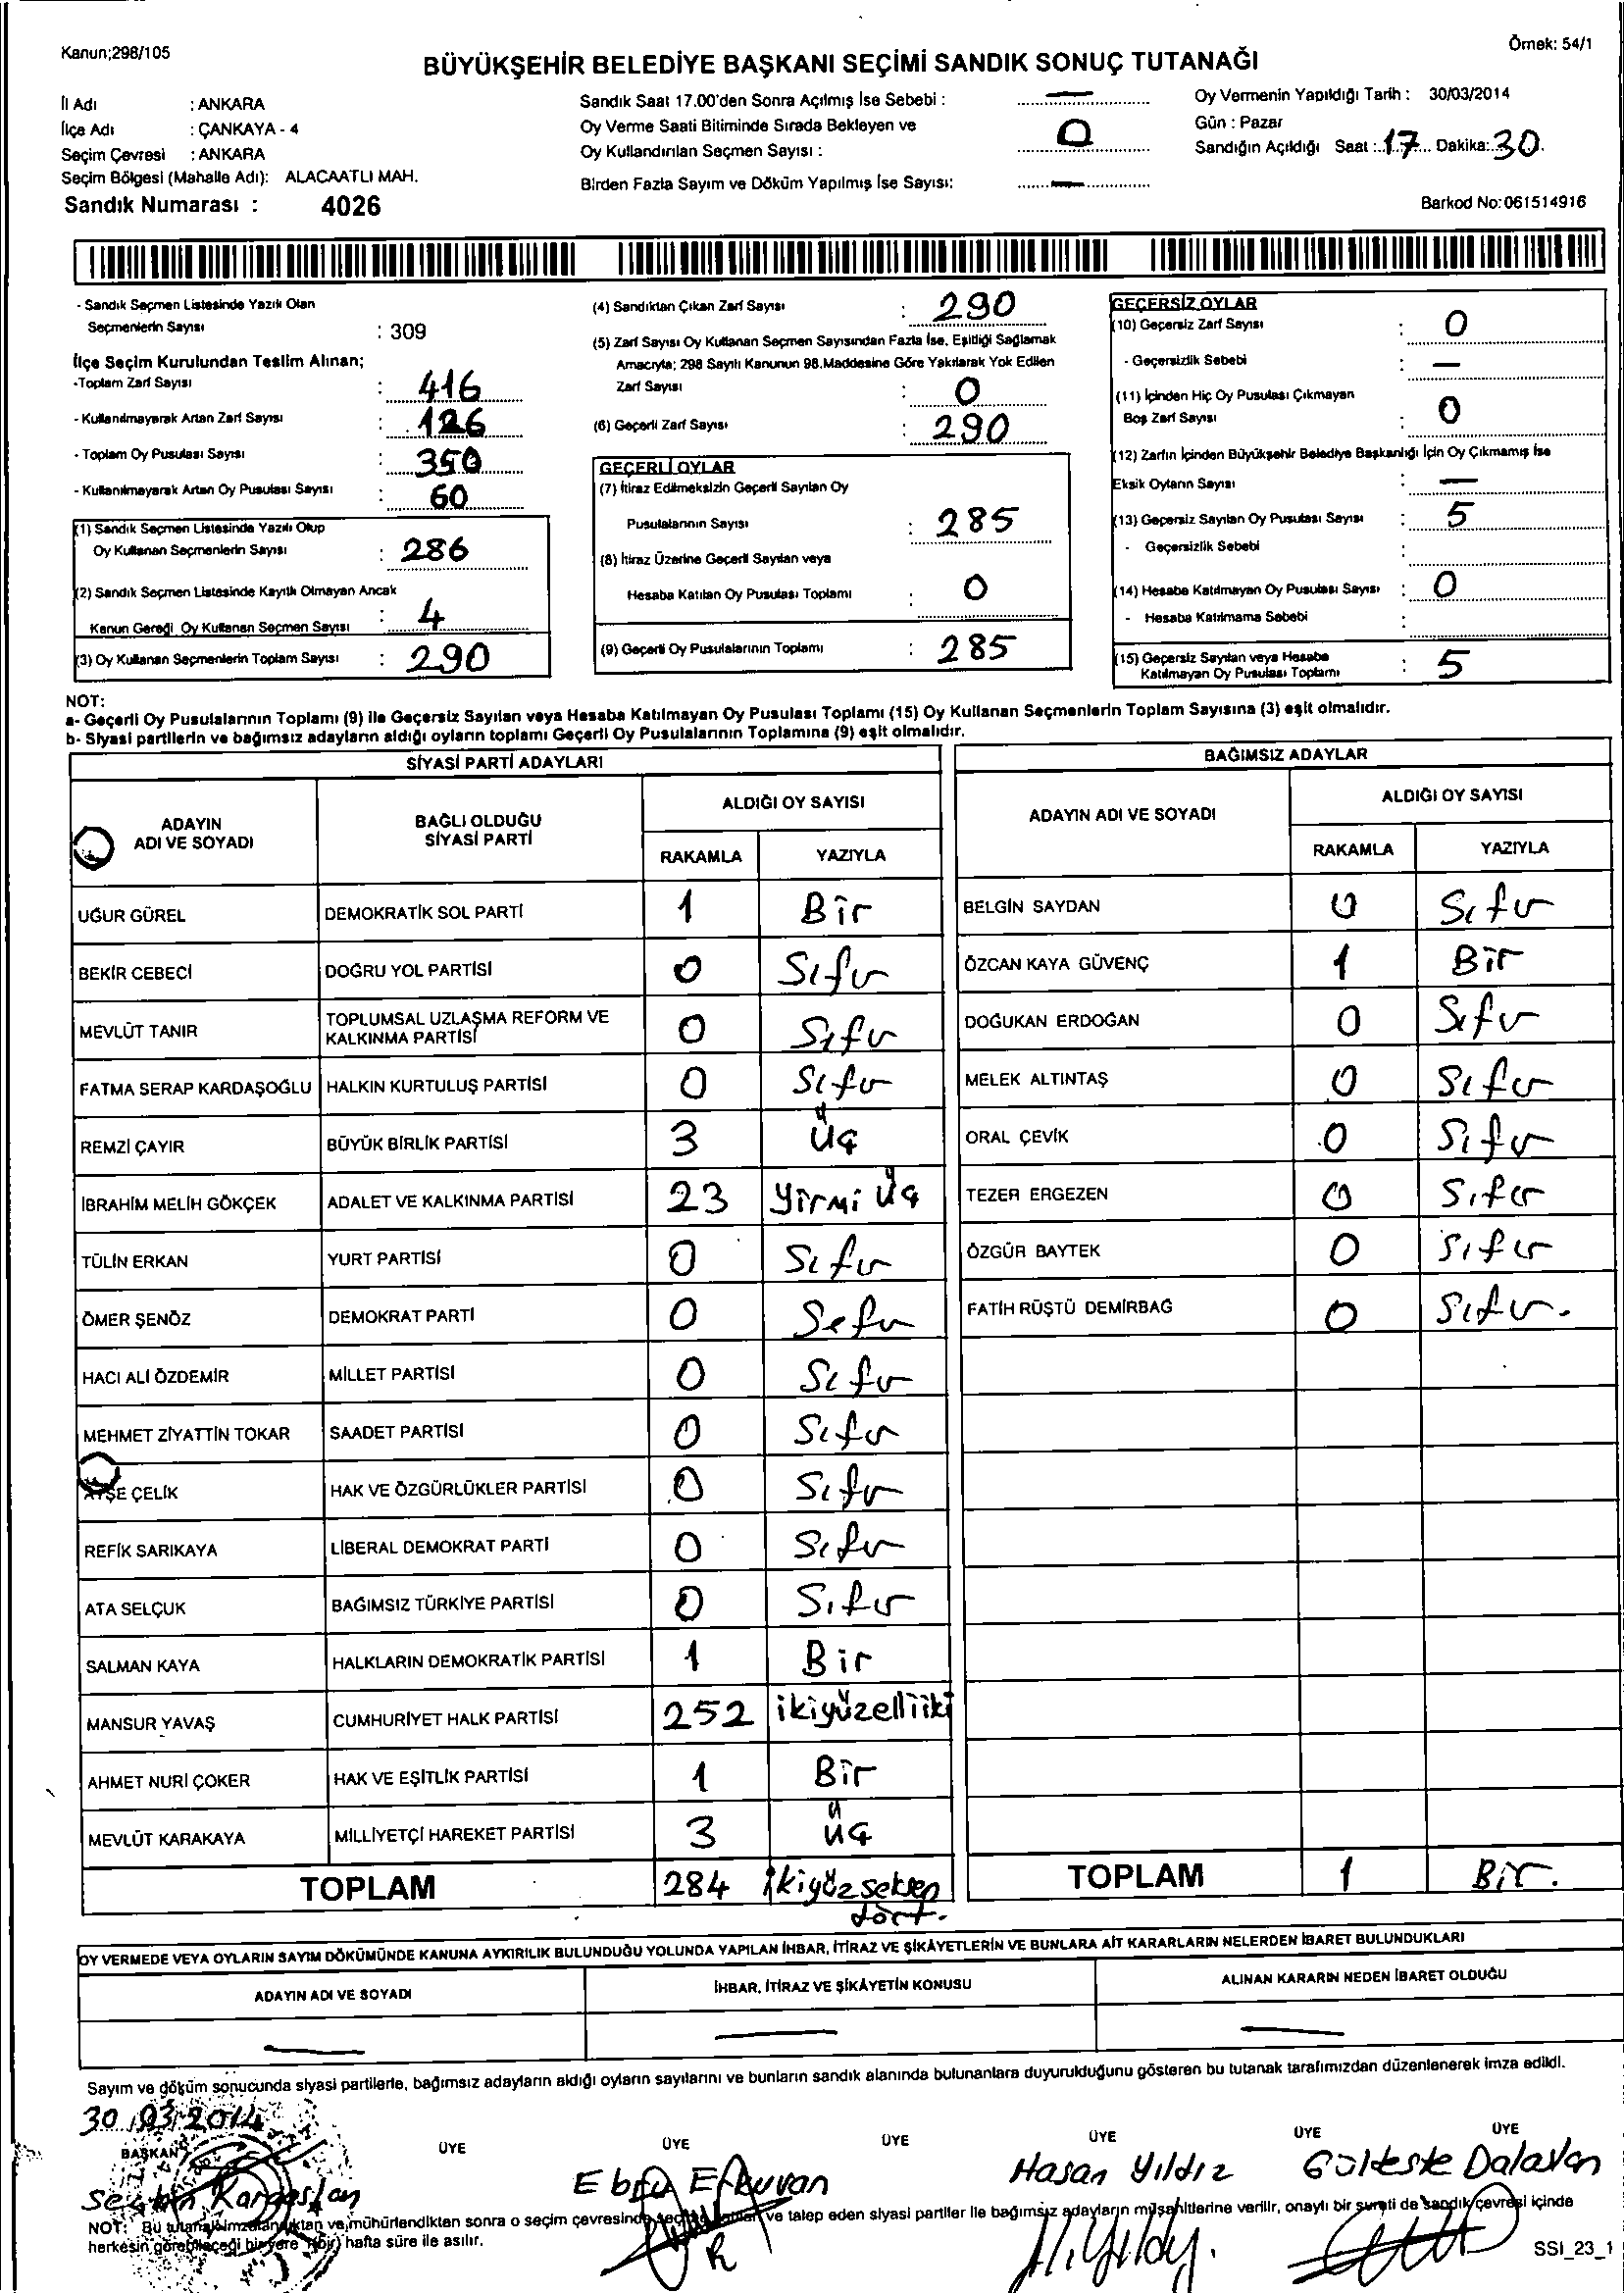 Kanun;298/105
Örnek: 54/1
BÜYÜKŞEHİR BELEDİYE BAŞKANI SEÇİMİ SANDIK SONUÇ TUTANAĞI
İl Adı : ANKARA
İlçe Adı : ÇANKAYA - 4
Seçim Çevresi : ANKARA
Seçim Bölgesi (Mahalle Adı): ALACAATLI MAH.
Sandık Numarası : 4026
Sandık Saat 17.00'den Sonra Açılmış İse Sebebi : —
Oy Verme Saati Bitiminde Sırada Bekleyen ve
Oy Kullandırılan Seçmen Sayısı : 0
Birden Fazla Sayım ve Döküm Yapılmış İse Sayısı: —
Oy Vermenin Yapıldığı Tarih : 30/03/2014
Gün : Pazar
Sandığın Açıldığı Saat : 17 Dakika: 30
Barkod No:061514916
- Sandık Seçmen Listesinde Yazılı Olan
Seçmenlerin Sayısı : 309
İlçe Seçim Kurulundan Teslim Alınan;
-Toplam Zarf Sayısı : 416
- Kullanılmayarak Artan Zarf Sayısı : 126
- Toplam Oy Pusulası Sayısı : 350
- Kullanılmayarak Artan Oy Pusulası Sayısı : 60
(1) Sandık Seçmen Listesinde Yazılı Olup
Oy Kullanan Seçmenlerin Sayısı : 286
(2) Sandık Seçmen Listesinde Kayıtlı Olmayan Ancak
Kanun Gereği Oy Kullanan Seçmen Sayısı : 4
(3) Oy Kullanan Seçmenlerin Toplam Sayısı : 290
(4) Sandıktan Çıkan Zarf Sayısı : 290
(5) Zarf Sayısı Oy Kullanan Seçmen Sayısından Fazla İse, Eşitliği Sağlamak
Amacıyla; 298 Sayılı Kanunun 98.Maddesine Göre Yakılarak Yok Edilen
Zarf Sayısı : 0
(6) Geçerli Zarf Sayısı : 290
GEÇERLİ OYLAR
(7) İtiraz Edilmeksizin Geçerli Sayılan Oy
Pusulalarının Sayısı : 285
(8) İtiraz Üzerine Geçerli Sayılan veya
Hesaba Katılan Oy Pusulası Toplamı : 0
(9) Geçerli Oy Pusulalarının Toplamı : 285
GEÇERSİZ OYLAR
(10) Geçersiz Zarf Sayısı : 0
- Geçersizlik Sebebi : —
(11) İçinden Hiç Oy Pusulası Çıkmayan
Boş Zarf Sayısı : 0
(12) Zarfın İçinden Büyükşehir Belediye Başkanlığı İçin Oy Çıkmamış İse
Eksik Oyların Sayısı : —
(13) Geçersiz Sayılan Oy Pusulası Sayısı : 5
- Geçersizlik Sebebi :
(14) Hesaba Katılmayan Oy Pusulası Sayısı : 0
- Hesaba Katılmama Sebebi :
(15) Geçersiz Sayılan veya Hesaba
Katılmayan Oy Pusulası Toplamı : 5
NOT:
a- Geçerli Oy Pusulalarının Toplamı (9) ile Geçersiz Sayılan veya Hesaba Katılmayan Oy Pusulası Toplamı (15) Oy Kullanan Seçmenlerin Toplam Sayısına (3) eşit olmalıdır.
b- Siyasi partilerin ve bağımsız adayların aldığı oyların toplamı Geçerli Oy Pusulalarının Toplamına (9) eşit olmalıdır.
SİYASİ PARTİ ADAYLARI
ADAYIN ADI VE SOYADI BAĞLI OLDUĞU SİYASİ PARTİ ALDIĞI OY SAYISI
RAKAMLA YAZIYLA
UĞUR GÜREL DEMOKRATİK SOL PARTİ 1 Bir
BEKİR CEBECİ DOĞRU YOL PARTİSİ 0 Sıfır
MEVLÜT TANIR TOPLUMSAL UZLAŞMA REFORM VE KALKINMA PARTİSİ 0 Sıfır
FATMA SERAP KARDAŞOĞLU HALKIN KURTULUŞ PARTİSİ 0 Sıfır
REMZİ ÇAYIR BÜYÜK BİRLİK PARTİSİ 3 Üç
İBRAHİM MELİH GÖKÇEK ADALET VE KALKINMA PARTİSİ 23 Yirmi Üç
TÜLİN ERKAN YURT PARTİSİ 0 Sıfır
ÖMER ŞENÖZ DEMOKRAT PARTİ 0 Sıfır
HACI ALİ ÖZDEMİR MİLLET PARTİSİ 0 Sıfır
MEHMET ZİYATTİN TOKAR SAADET PARTİSİ 0 Sıfır
AYŞE ÇELİK HAK VE ÖZGÜRLÜKLER PARTİSİ 0 Sıfır
REFİK SARIKAYA LİBERAL DEMOKRAT PARTİ 0 Sıfır
ATA SELÇUK BAĞIMSIZ TÜRKİYE PARTİSİ 0 Sıfır
SALMAN KAYA HALKLARIN DEMOKRATİK PARTİSİ 1 Bir
MANSUR YAVAŞ CUMHURİYET HALK PARTİSİ 252 ikiyüzelliiki
AHMET NURİ ÇOKER HAK VE EŞİTLİK PARTİSİ 1 Bir
MEVLÜT KARAKAYA MİLLİYETÇİ HAREKET PARTİSİ 3 Üç
TOPLAM 284 ikiyüzseksen dört.
BAĞIMSIZ ADAYLAR
ADAYIN ADI VE SOYADI ALDIĞI OY SAYISI
RAKAMLA YAZIYLA
BELGİN SAYDAN 0 Sıfır
ÖZCAN KAYA GÜVENÇ 1 Bir
DOĞUKAN ERDOĞAN 0 Sıfır
MELEK ALTINTAŞ 0 Sıfır
ORAL ÇEVİK 0 Sıfır
TEZER ERGEZEN 0 Sıfır
ÖZGÜR BAYTEK 0 Sıfır
FATİH RÜŞTÜ DEMİRBAĞ 0 Sıfır.
TOPLAM 1 Bir.
OY VERMEDE VEYA OYLARIN SAYIM DÖKÜMÜNDE KANUNA AYKIRILIK BULUNDUĞU YOLUNDA YAPILAN İHBAR, İTİRAZ VE ŞİKÂYETLERİN VE BUNLARA AİT KARARLARIN NELERDEN İBARET BULUNDUKLARI
ADAYIN ADI VE SOYADI İHBAR, İTİRAZ VE ŞİKÂYETİN KONUSU ALINAN KARARIN NEDEN İBARET OLDUĞU
— — —
Sayım ve döküm sonucunda siyasi partilerle, bağımsız adayların aldığı oyların sayılarını ve bunların sandık alanında bulunanlara duyurulduğunu gösteren bu tutanak tarafımızdan düzenlenerek imza edildi.
30.03.2014
BAŞKAN ÜYE ÜYE ÜYE ÜYE ÜYE ÜYE
Ebru Hasan Yıldız
NOT: Bu tutanak imzalandıktan ve mühürlendikten sonra o seçim çevresinde ve talep eden siyasi partiler ile bağımsız adayların müşahitlerine verilir, onaylı bir sureti de sandık çevresi içinde
herkesin görebileceği bir yere (bir) hafta süre ile asılır.
SSI_23_1